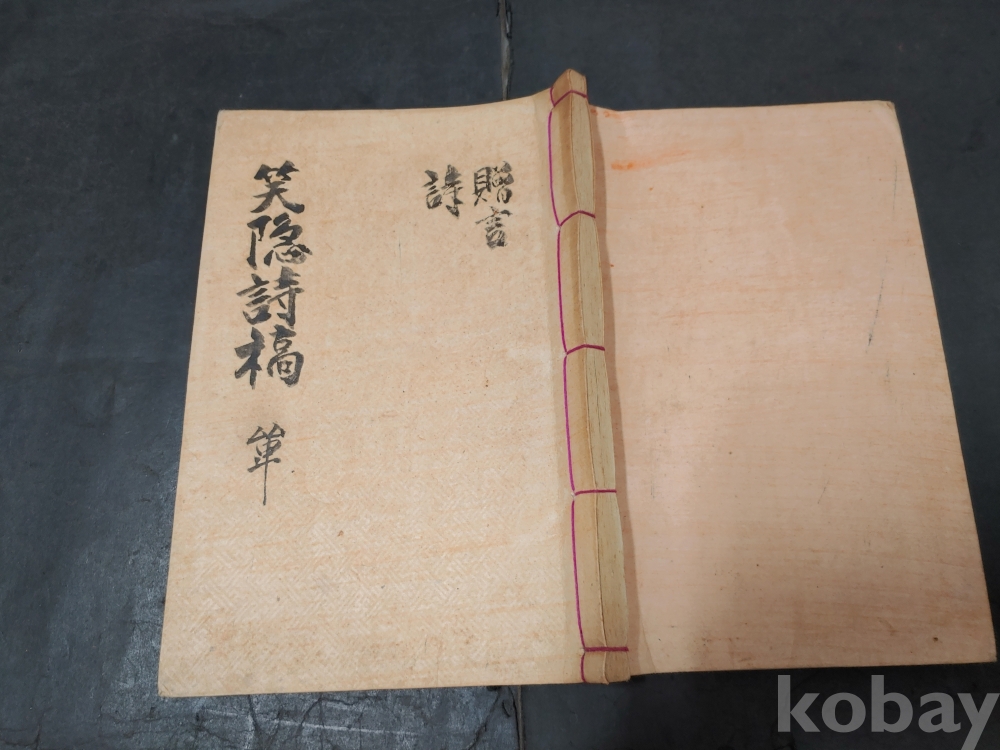 笑隐詩稿 單
贈言
詩
kobay